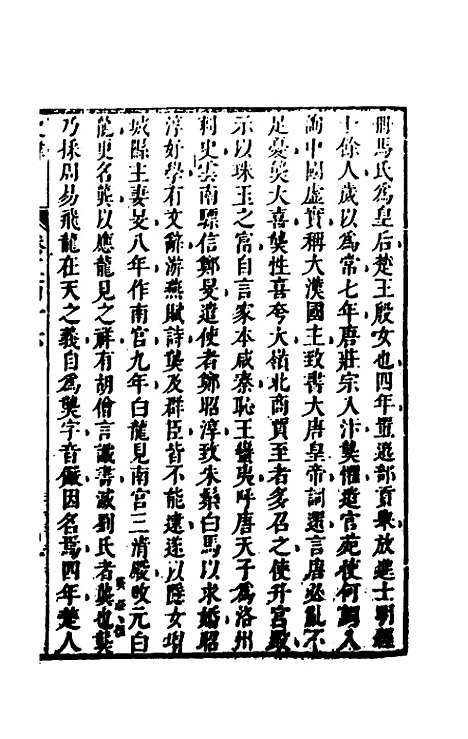 冊馬氏爲皇后楚王殷女也四年置選部貢舉放進士明經
十餘人歲以爲常七年唐莊宗入汴龑懼遣宮苑使何詞入
詢中國虛實稱大漢國主致書大唐皇帝詞還言唐必亂不
足憂龑大喜龑性喜夸大嶺北商賈至者多召之使升宮殿
示以珠玉之富自言家本咸秦恥王蠻夷呼唐天子爲洛州
刺史雲南驃信鄭旻遣使者鄭昭淳致朱鬃白馬以求婚昭
淳好學有文辭游燕賦詩龑及群臣皆不能逮遂以隱女增
城縣主妻旻八年作南宮九年白龍見南宮三清殿改元白
龍更名龔以應龍見之祥有胡僧言讖書滅劉氏者龔也龑
乃採周易飛龍在天之義自爲龑字音儼因名焉四年楚人